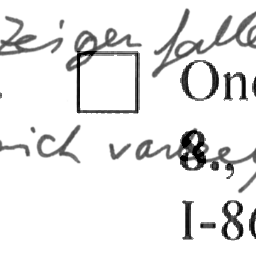 zeiger falle
One
mich
8.,
I-86